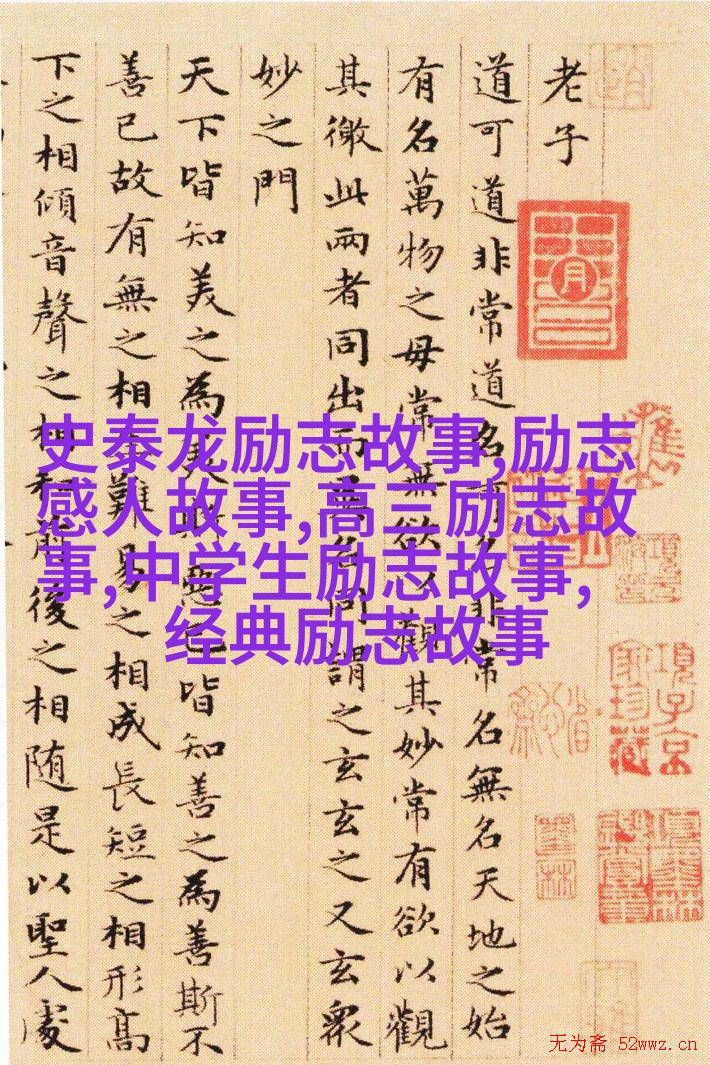 老子
道可道非常道名可名非常名無名天地之始
有名萬物之母常無欲以觀其妙常有欲以觀
其徼此兩者同出而異名同謂之玄玄之又玄衆
妙之門
天下皆知美之為美斯惡已皆知善之為善斯不
善已故有無之相生難易之相成長短之相形高
下之相傾音聲之相和前後之相随是以聖人處
史泰龙励志故事,励志
感人故事,高三励志故
事,中学生励志故事,
经典励志故事
項子京
家珍藏
无为斋 52wwz.cn